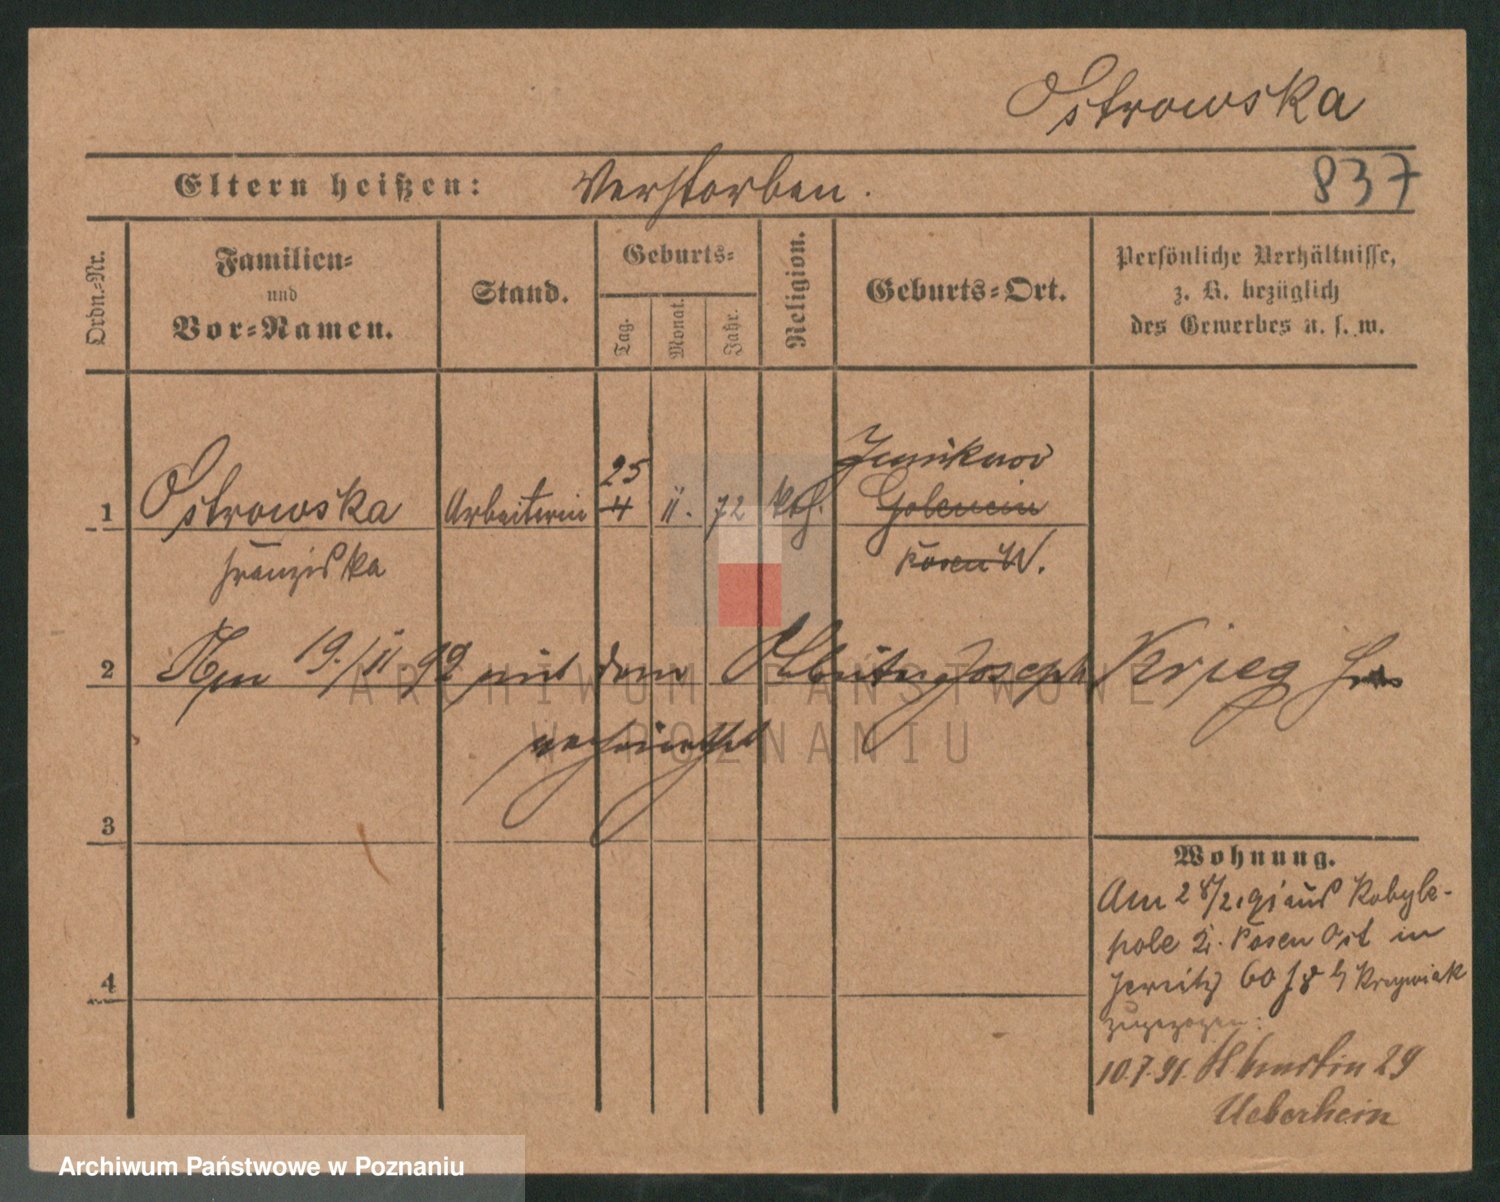 Ostrowska
Eltern heißen: Verstorben.
837
Ordn.-Nr.
Familien-
und
Vor-Namen.
Stand.
Geburts-
Tag.
Monat.
Jahr.
Religion.
Geburts-Ort.
Persönliche Verhältnisse,
z. B. bezüglich
des Gewerbes u. s. w.
25
Junikowo
1 Ostrowska Arbeiterin 4 II. 72 kth. Golencin
Franziska Posen W.
2 Am 19./II 98 mit dem Arbeiter Joseph Krieg
verheirathet
3
Wohnung.
Am 28/2.91 aus Kobyle-
pole Kr. Posen Ost in
Jersitz 60 f 8 b Krzywiak
zugezogen.
4
10.7.91. 29
Ueberhein
ARCHIWUM PAŃSTWOWE
W POZNANIU
Archiwum Państwowe w Poznaniu